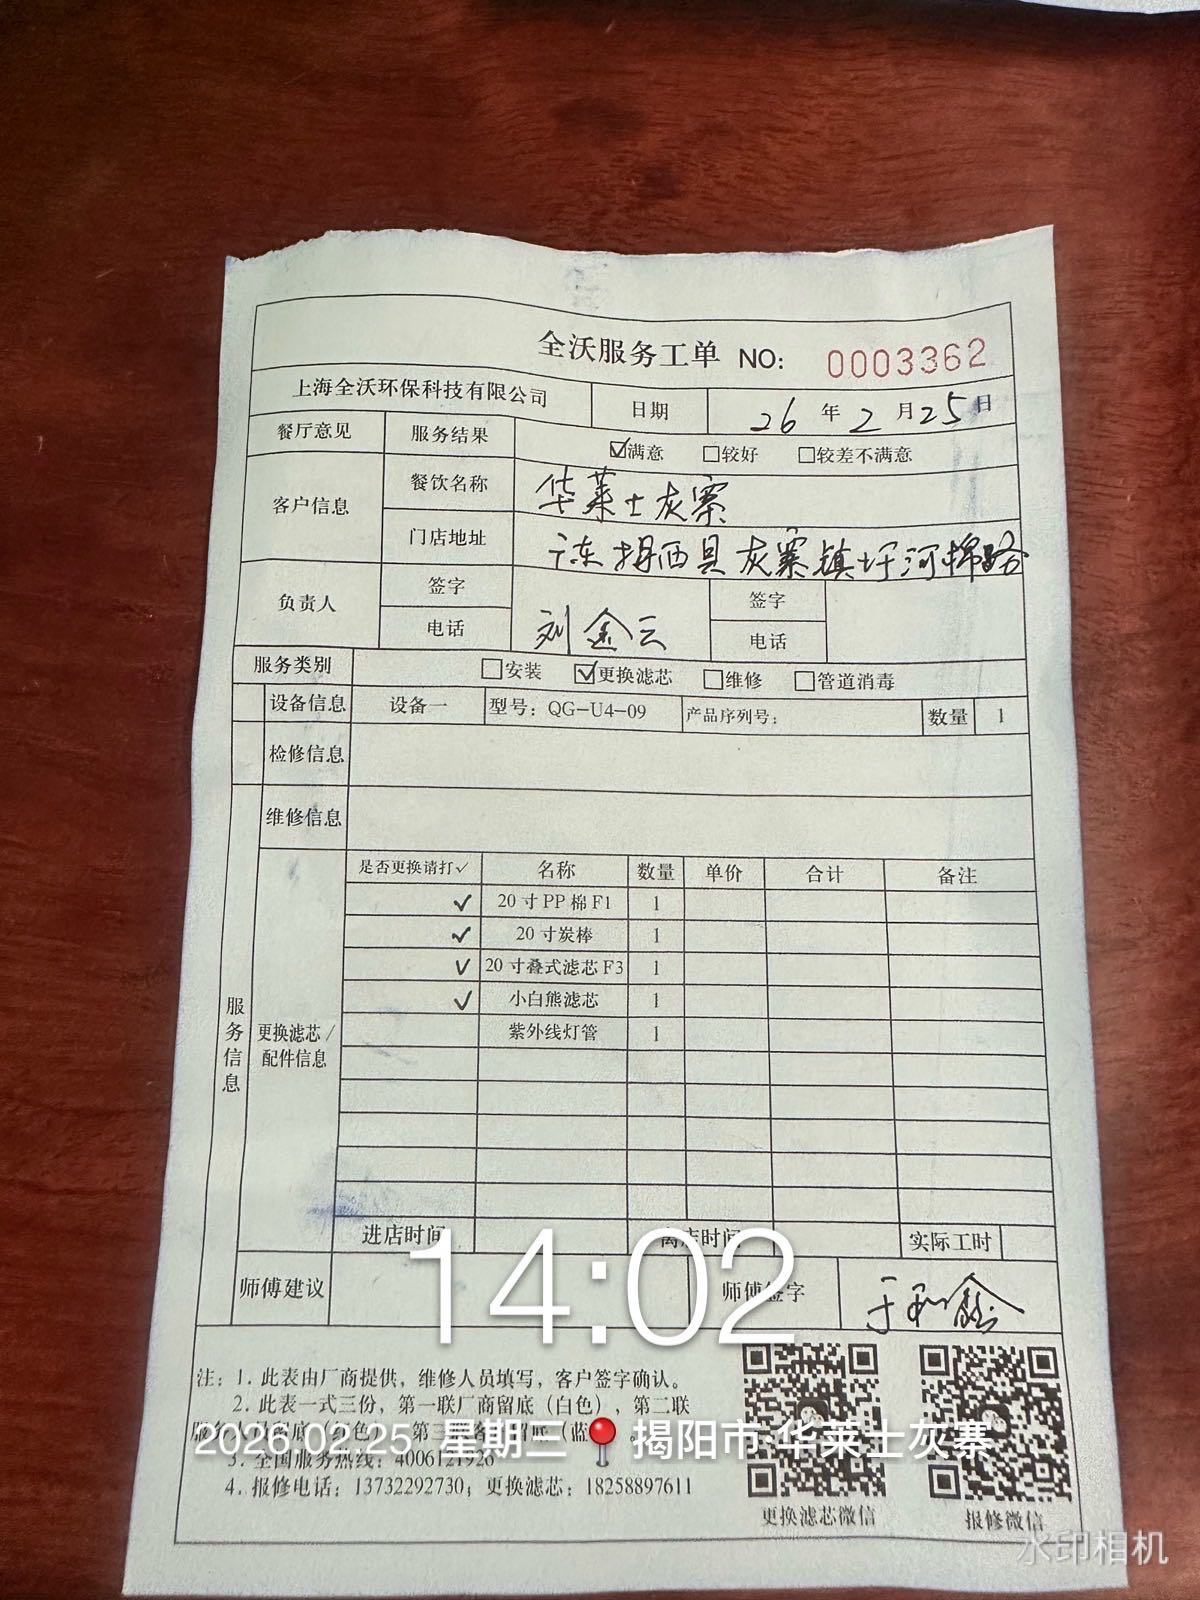 全沃服务工单 NO: 0003362
上海全沃环保科技有限公司 日期 26 年 2 月 25 日
餐厅意见 服务结果 ☑满意 □较好 □较差不满意
客户信息 餐饮名称 华莱士灰寨
门店地址 广东揭西县灰寨镇圩河棉路
负责人 签字 刘金云 签字
电话 电话
服务类别 □安装 ☑更换滤芯 □维修 □管道消毒
设备信息 设备一 型号：QG-U4-09 产品序列号： 数量 1
检修信息
维修信息
服务信息
更换滤芯/配件信息
是否更换请打✓ 名称 数量 单价 合计 备注
✓ 20寸PP棉F1 1
✓ 20寸炭棒 1
✓ 20寸叠式滤芯F3 1
✓ 小白熊滤芯 1
紫外线灯管 1
进店时间 离店时间 实际工时
14:02
师傅建议 师傅签字
注：1. 此表由厂商提供，维修人员填写，客户签字确认。
2. 此表一式三份，第一联厂商留底（白色），第二联
2026.02.25 星期三 揭阳市·华莱士灰寨
3. 全国服务热线：4006121926
4. 报修电话：13732292730；更换滤芯：18258897611
更换滤芯微信 报修微信
水印相机